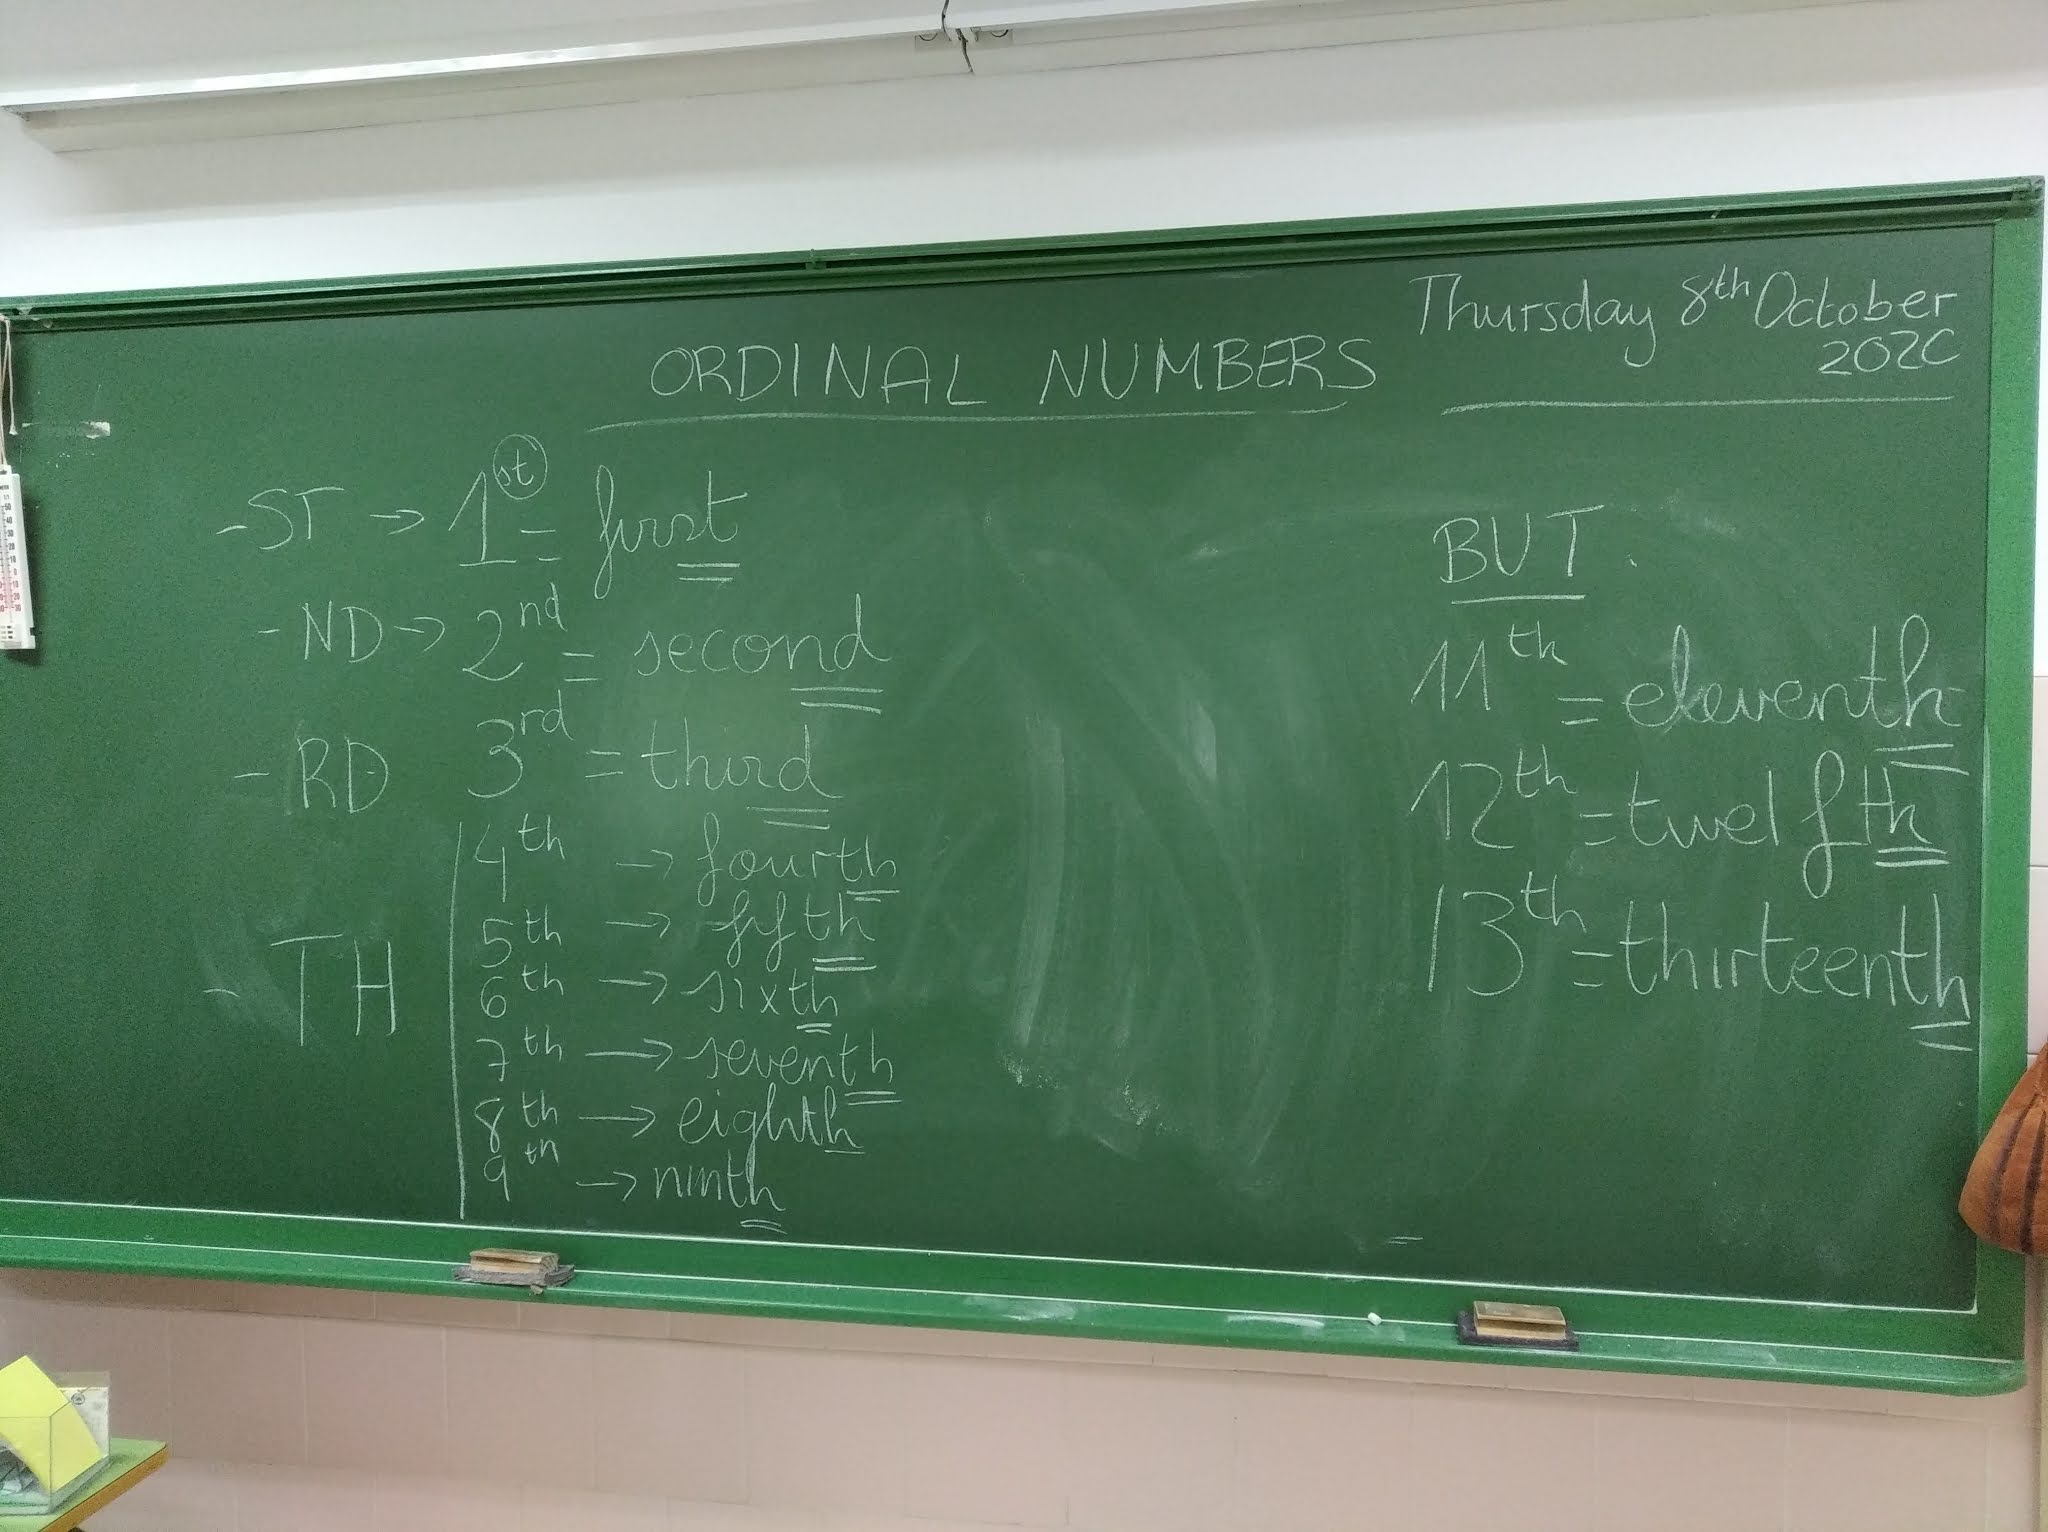 Thursday 8th October
2020
ORDINAL NUMBERS
-ST → 1st = first
-ND → 2nd = second
-RD 3rd = third
-TH
4th → fourth
5th → fifth
6th → sixth
7th → seventh
8th → eighth
9th → ninth
BUT
11th = eleventh
12th = twelfth
13th = thirteenth